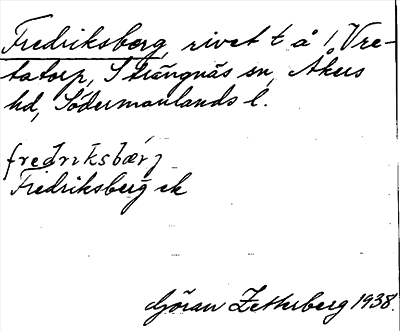 Fredriksberg, rivet t å / Vre-
tatorp, Strängnäs sn, Åkers
hd, Södermanlands l.
fredriksbærj
Fredriksberg ek
Göran Zetterberg 1938.